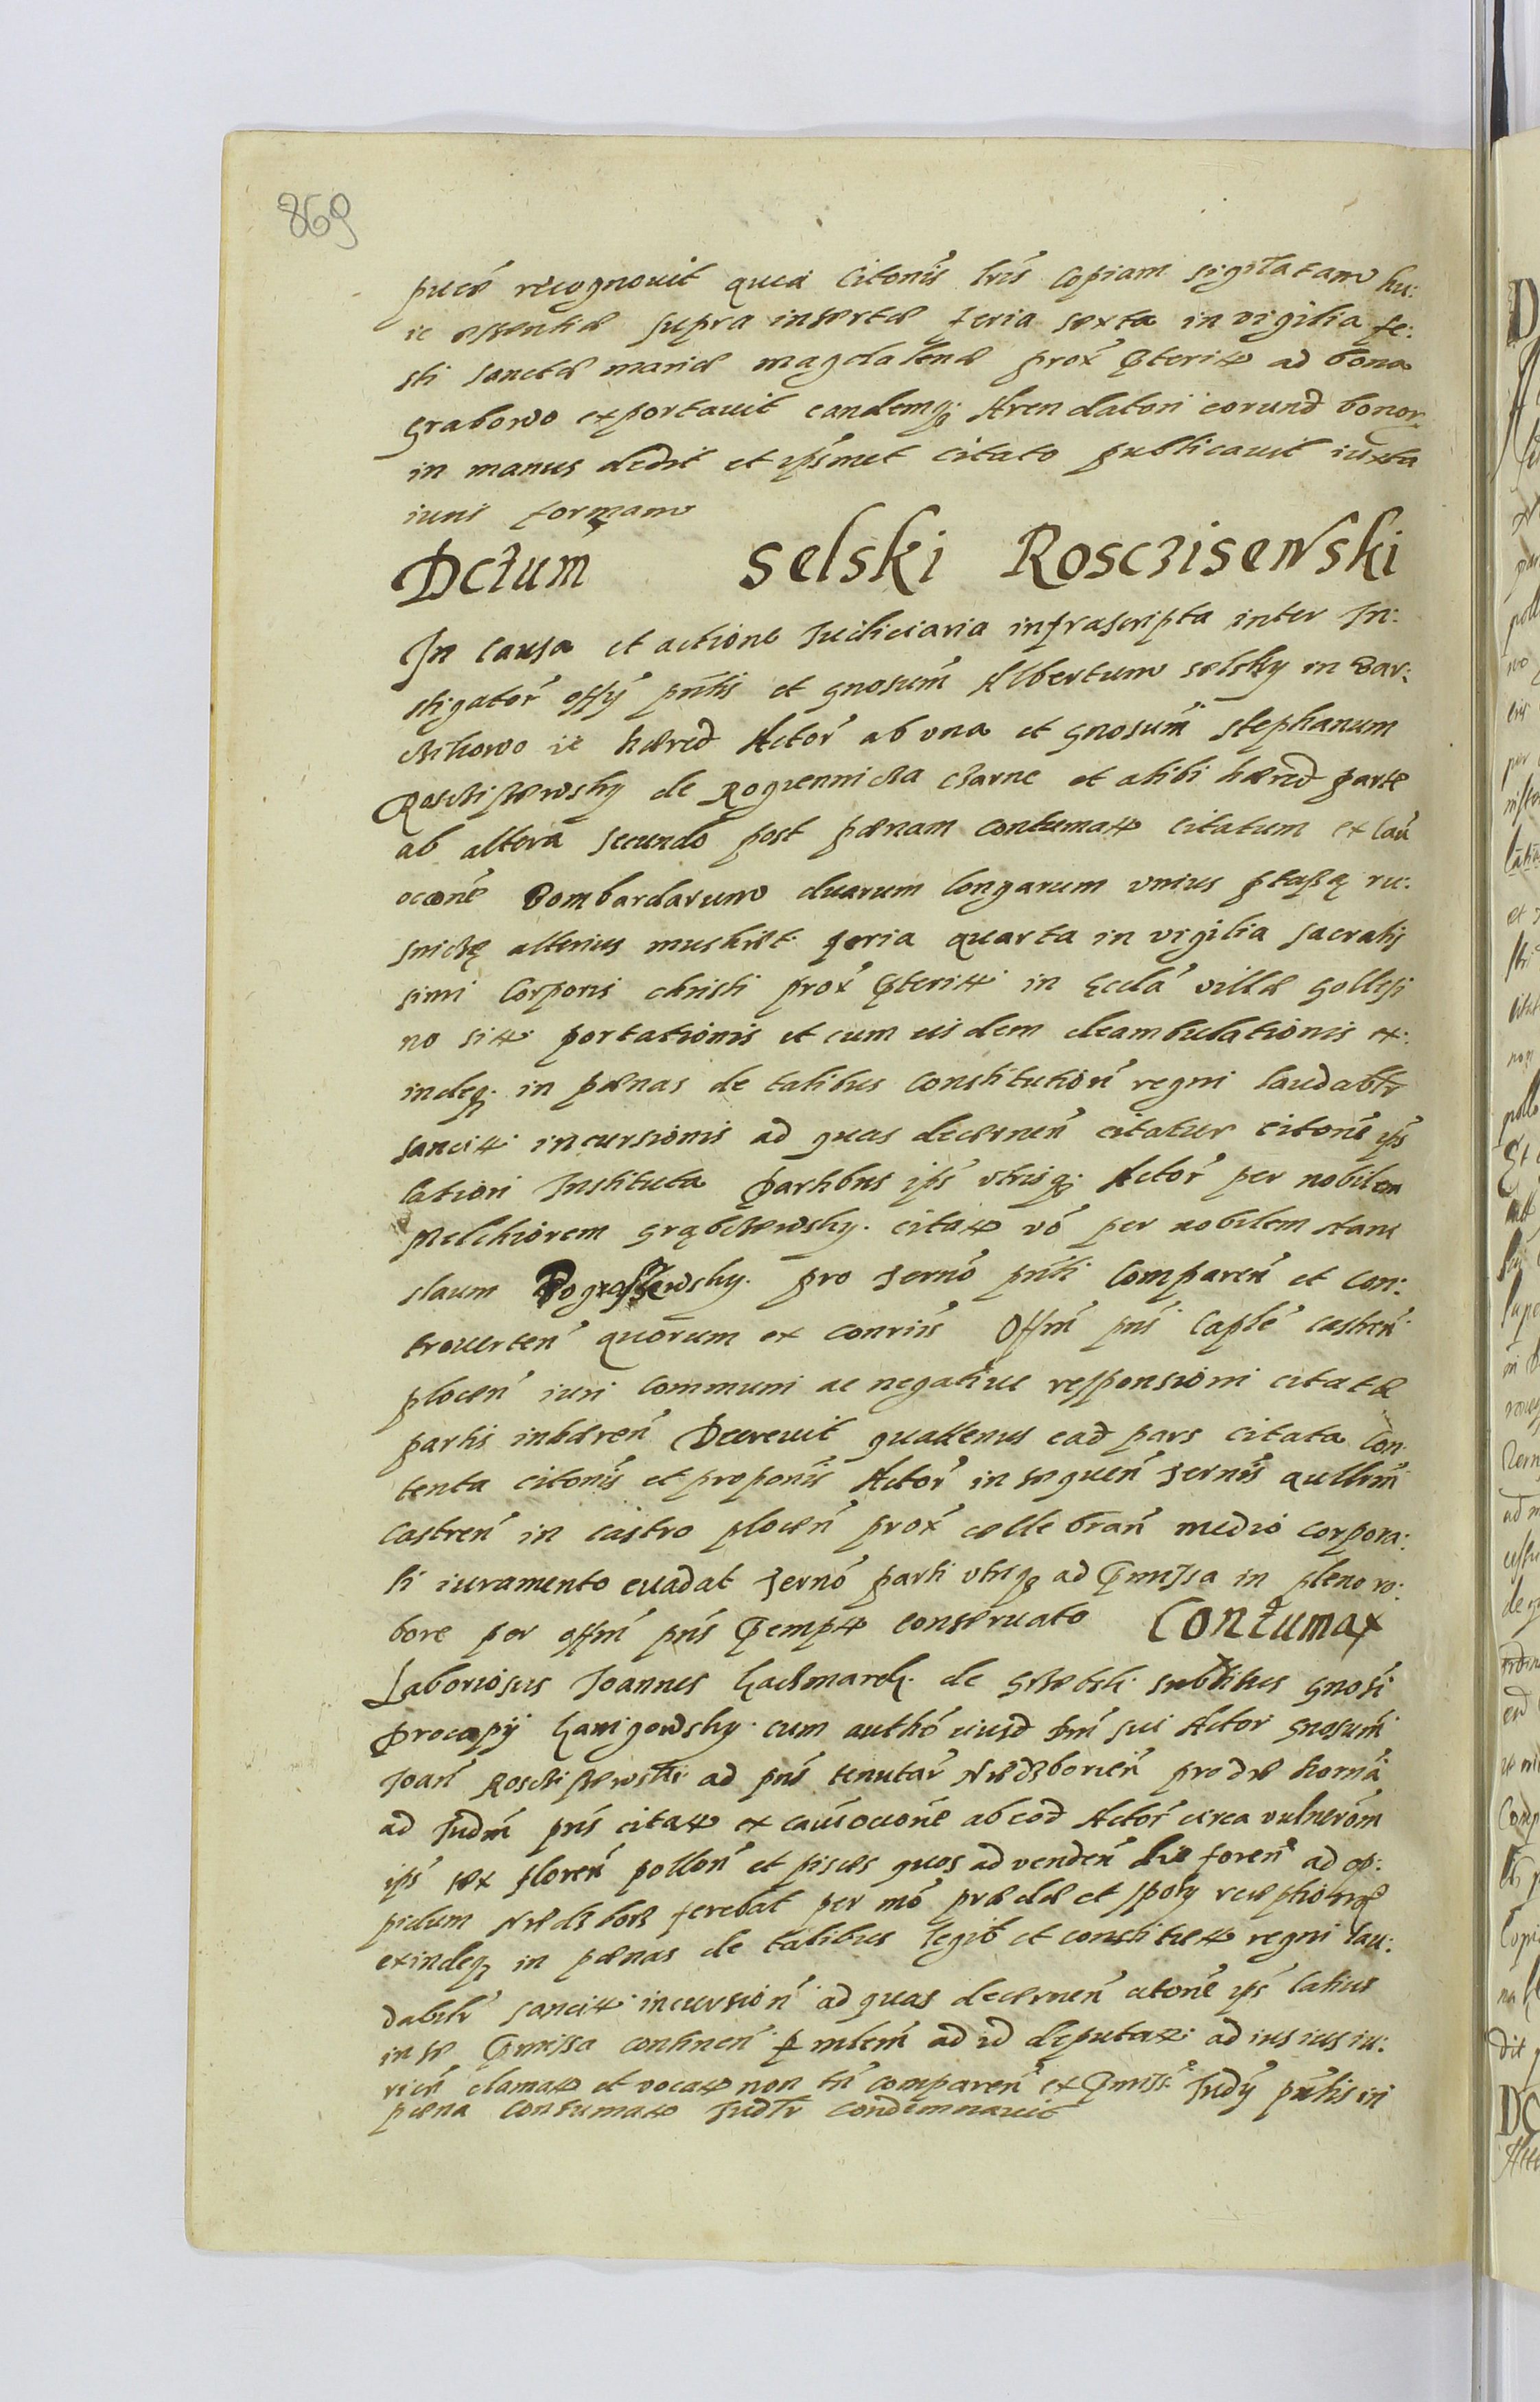 869
publice recognouit quia Citonis lris Copiam sigillatam hu:
ic essentiae supra insertae feria sexta in vigilia fe:
sti Sanctae mariae magdalenae prox pterit ad bona
Grabowo exportauit eandemq; Arendatori eorund bonor
in manus dedit et ipsimet citato publicauit iuxta
iuris formam
Dctum Selski Rosczisewski
In causa et actione Judiciaria infrascripta inter In:
stigator offy pntis et gnosum Albertum selsky in
hered Actor ab vna et gnosum Stephanum
Rosczissewsky de czarne et alibi haered parte
ab altera secundo post paenam contumat citatum ex cau
Bombardarum duarum longarum vnius ru:
snicze alterius musket feria quarta in vigilia sacratis
simi Corporis christi prox pterit in Eccla villae Gollesi
no sit portationis et cum eisdem deambulationis ex:
indeq; in paenas de talibus Constitution regni laudabltr
sancit incursionis ad quas decernen citatur citone ips
lation Instituta Partibus ips vtrisq; Actor per nobilem
Melchiorem Grąbczewsky. citat vo per nobilem stani
slaum pro termo pnti Comparen et Con:
trouerten quorum ex conriis Offm pns Caple castren
plocen iuri communi ac negatiue responsioni citatae
partis inhaeren Decreuit quattenus ead pars citata Con
tenta citonis et proponis Actor in sequen termis qullrm
Castren in castro plocen prox cellebran medio corpora:
li iuramento euadat termo parti vtriq; ad pmissa in pleno ro:
bore per offm pns pempt conseruato Contumax
Laboriosus Joannes Kaczmarek. de subditus gnosi
Procopy cum autho eiusd dni sui Actor gnosum
Joan Rosczissewski ad pns tenutar Niedzborien
ad Judm pns citat ex ab eod Actor circa vulnerom
ips sex floren pollon et pisces quos ad venden die foren ad op:
pidum Niedzborz ferebat per mo praedae et spoly
exindeq; in paenas de talibus legib et constitut regni lau:
dabilr sancit incursion ad quas decernen citone ips latius
in se pmissa continen p mlem ad id deputat ad ius ius iu:
ricn clamat et vocat non tn comparen ex pmis Judy pntis in
paena Contumat Judtr condemnauit